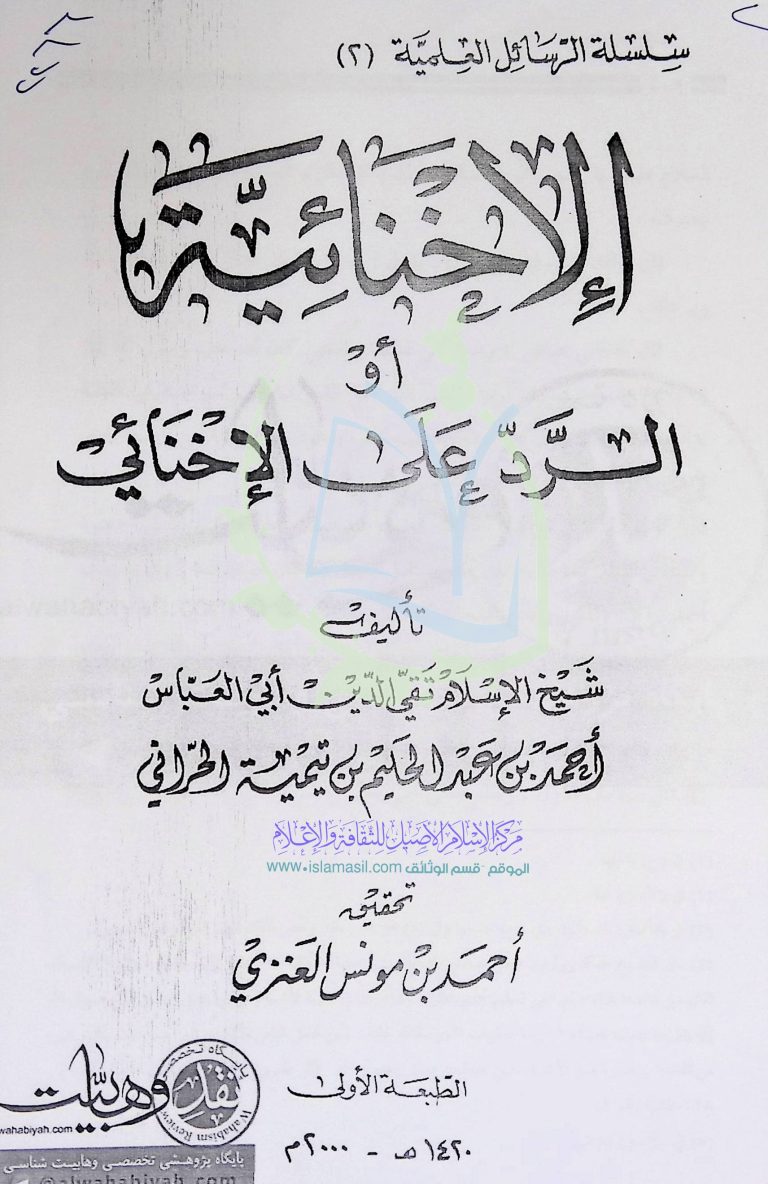 سلسلة الرسائل العلمية (٢)
الإخنائية
أو
الرد على الإخنائي
تأليف
شيخ الإسلام تقي الدين أبي العباس
أحمد بن عبد الحليم بن تيمية الحراني
مركز الإسلام الأصيل للثقافة والإعلام
الموقع - قسم الوثائق www.islamasil.com
تحقيق
أحمد بن مونس العنزي
الطبعة الأولى
١٤٢٠ هـ - ٢٠٠٠ م
پایگاه تخصصی
نقد وهابیت
Wahabism Review
wahabiyah.com
پایگاه پژوهشی تخصصی وهابیت شناسی
@alwahabiyah.com